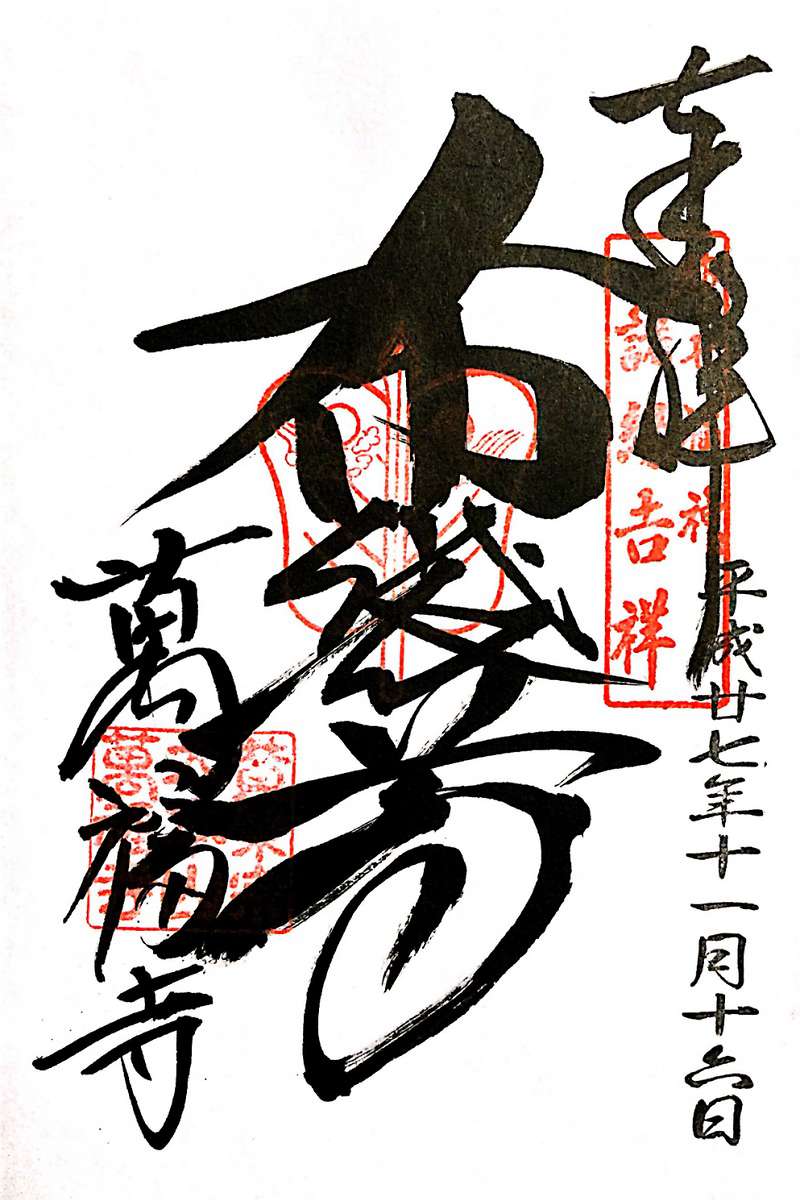 奉拝
平成廿七年十一月十六日
諸縁吉祥
布袋尊
萬福寺